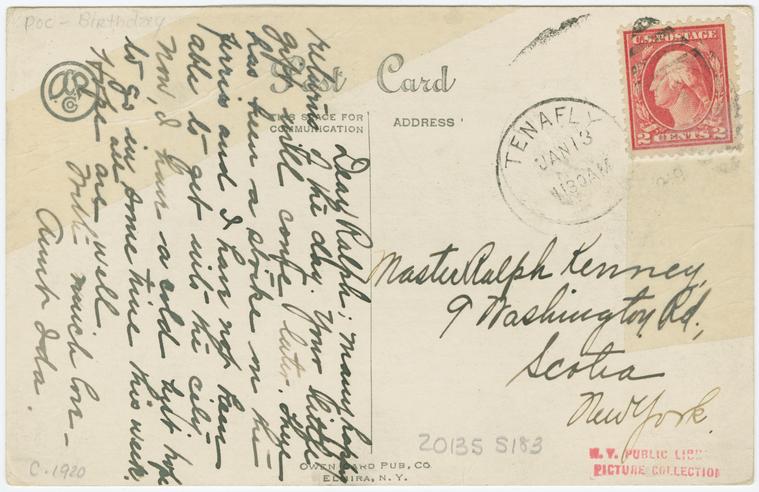 Doc - Birthday
Post Card
THIS SPACE FOR
COMMUNICATION
ADDRESS
U.S. POSTAGE
2 CENTS 2
TENAFLY
JAN 13
1130AM
Dear Ralph; many happy
returns of the day. Your little
gift will come later. There
has been a strike on the
ferries and I have not been
able to get into the city
now, I have a cold but hope
to go in some time this week.
Hope all are well
With much love -
Aunt Ida.
Master Ralph Kenney,
9 Washington Rd.,
Scotia
New York.
20135 S183
C. 1920
OWEN CARD PUB. CO.
ELMIRA, N. Y.
N. Y. PUBLIC
PICTURE COLLECTION